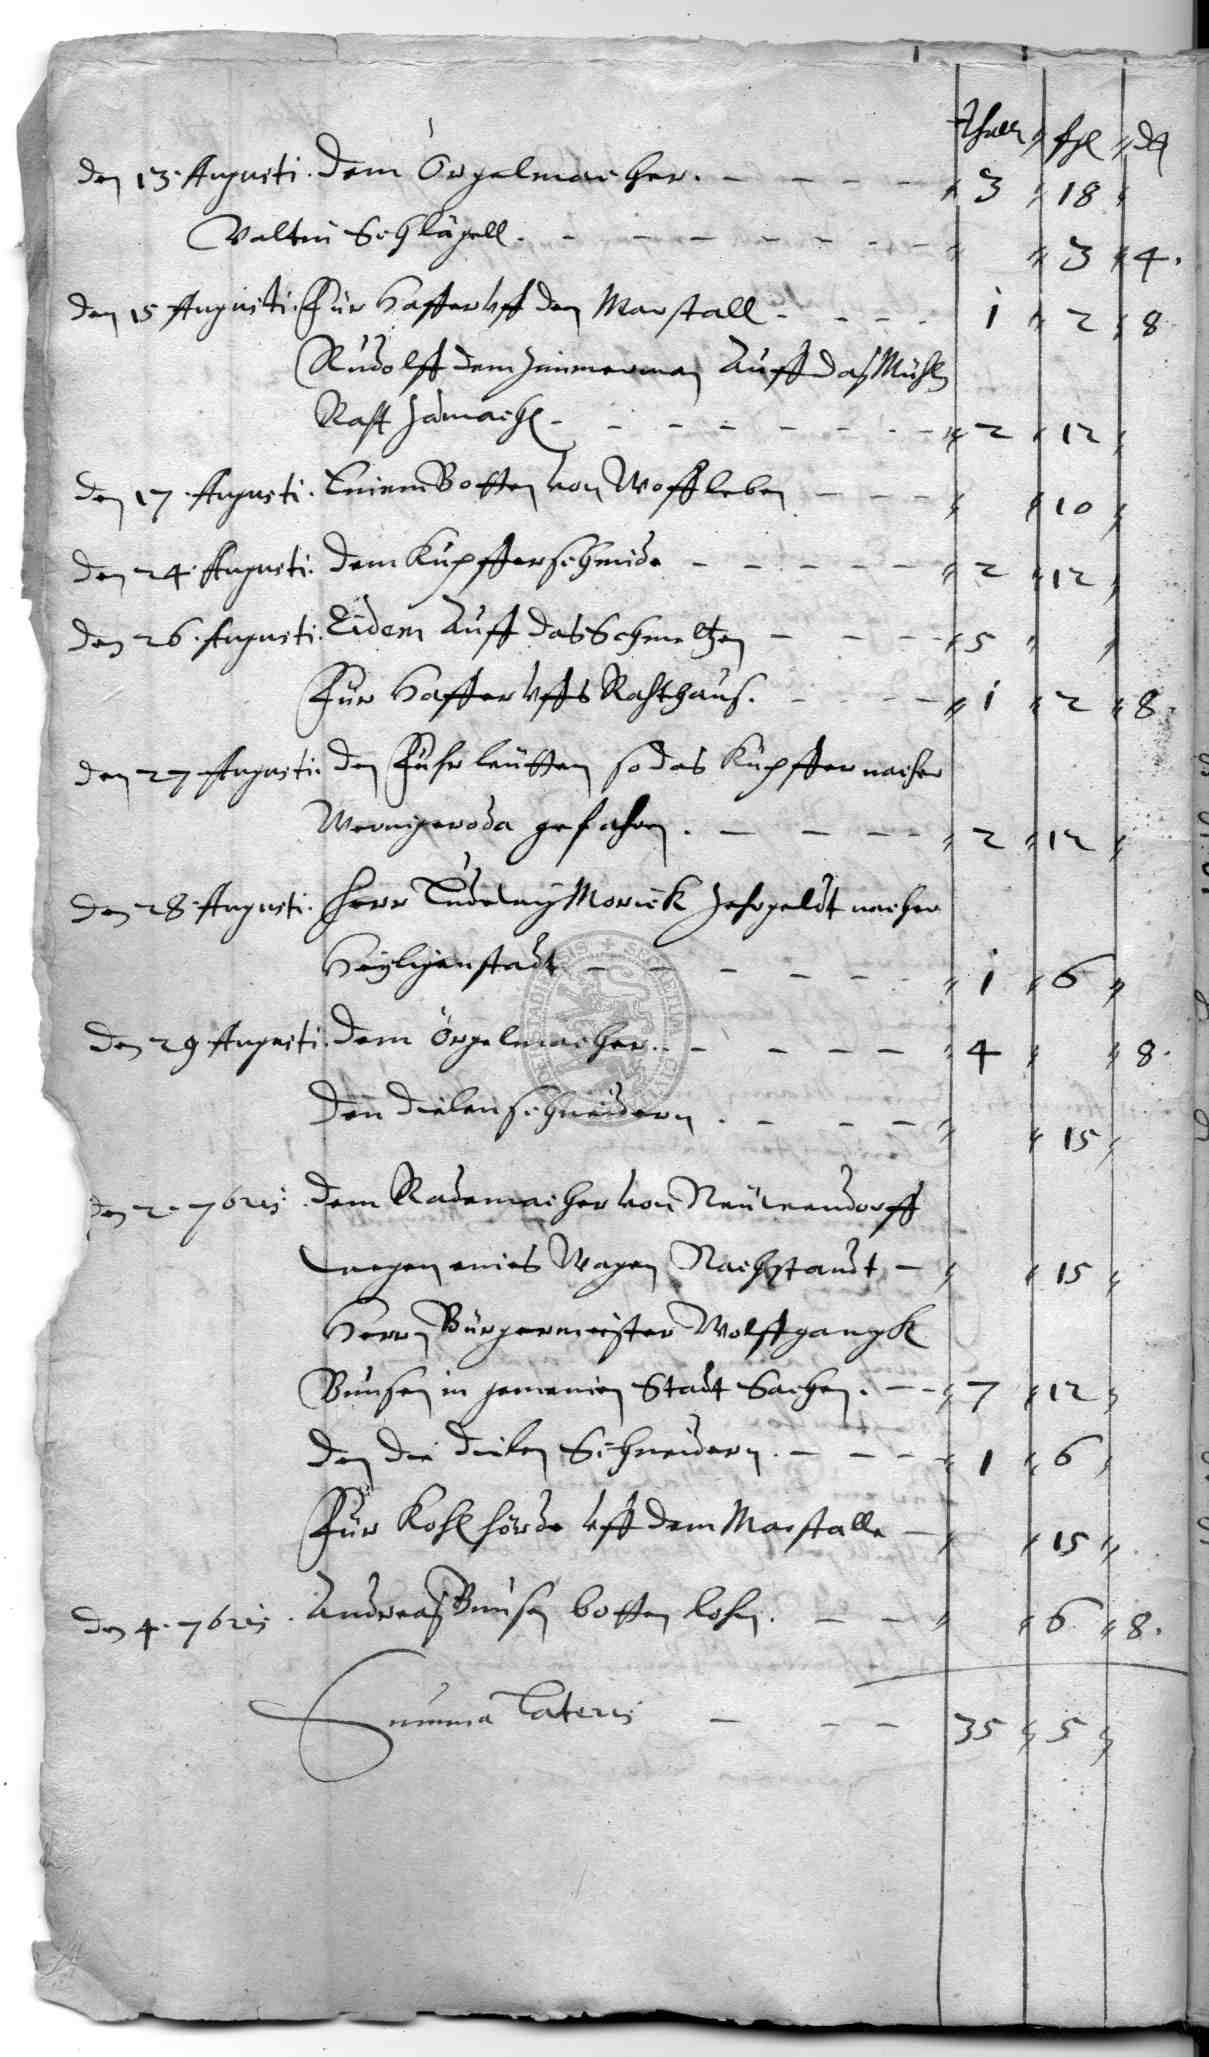 Thaler fgl d
den 13. Augusti. Dem Orgelmacher. 3 18
Valtin Schlägell. 3 4.
den 15 Augusti. Für Haffer vff den Marstall 1 2 8
Rudolff dem Zimmerman Auff das Mühl
Rath Zumach 2 12
den 17. Augusti. Einem Botten von Woffleben 10
den 24. Augusti. Dem Kupfferschmide 2 12
den 26. Augusti. Eidem Auff das Schmeltzen 5
Für Haffer vffs Rahthaus. 1 2 8.
den 27. Augusti. den Fuhrleutten so das Kupffer nacher
Wernigeroda gefahren. 2 12
den 28. Augusti. Herr Ludewig Morick Zehrgeldt nacher
Heyligenstadt 1 6
den 29 Augusti. Dem Orgelmacher. 4 8.
Den Dielenschneidern. 15
den 2. 7bris. Dem Rademacher von
wegen eines Wagen Nachstandt 15
Herrn Bürgermeister Wolffgangk
Bunsen in gemeinen Stadt Sachen. 7 12
Den die Dielen Schneidern. 1 6
Für Kohl vff dem Marstalle 15
den 4. 7bris. Andreas Bunsen botten lohn. 6 8.
Summa Lateris 35 5